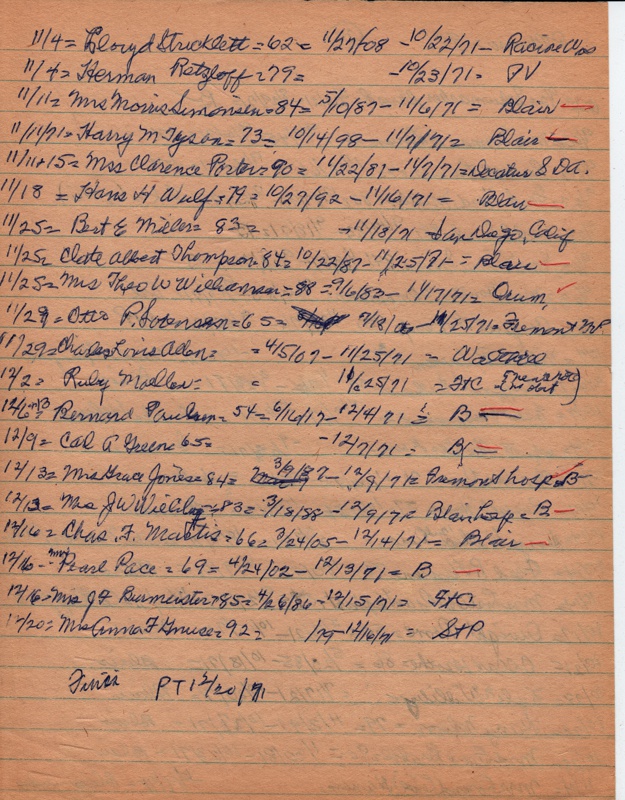 11/4 = Lloyd Stricklett = 62 = 11/27/08 - 10/22/71 - Racine Wis
11/4 = Herman Retzloff = 79 = - 10/23/71 = PV
11/11 = Mrs Morris Simonsen = 84 = 5/10/87 - 11/6/71 = Blair
11/11/71 = Harry M Tyson = 73 = 10/14/98 - 11/7/71 = Blair
11/11+15 = Mrs Clarence Porter = 90 = 11/22/81 - 11/7/71 = Decatur SDA.
11/18 = Hans H Wulf = 79 = 10/27/92 - 11/16/71 = Blair
11/25 = Bert E Miller = 83 = - 11/18/71 - San Diego, Calif
11/25 = Clate Albert Thompson = 84 = 10/22/87 - 11/25/71 - = Blair
11/25 = Mrs Theo W Williamsen = 88 = 9/6/83 - 11/17/71 = Orum,
11/29 = Otto P. Sorensen = 65 = 9/18/06 - 11/25/71 = Fremont
11/29 = Charles Louis Allen = = 4/5/07 - 11/25/71 =
12/2 = Ruby = = 11/25/71 = FtC
Bernard Paulsen = 54 = 6/16/17 - 12/4/71 = B
12/9 = Cal A Greene 65 = - 12/7/71 = B
12/13 = Mrs Grace Jones = 84 = 3/9/87 - 12/9/71 = Fremont hosp = B
12/13 = Mrs J W = 83 = 3/18/88 - 12/9/71 = Blair hosp = B
12/16 = Chas. F. Mattis = 66 = 3/24/05 - 12/14/71 = Blair
12/16 - Mrs Pearl Pace = 69 = 4/24/02 - 12/13/71 = B
12/16 = Mrs J F Burmeister = 85 = 4/26/86 - 12/15/71 = FtC
12/20 = Mrs Anna F Gnuse = 92 = /79 - 12/16/71 = StP
Finis PT 12/20/71